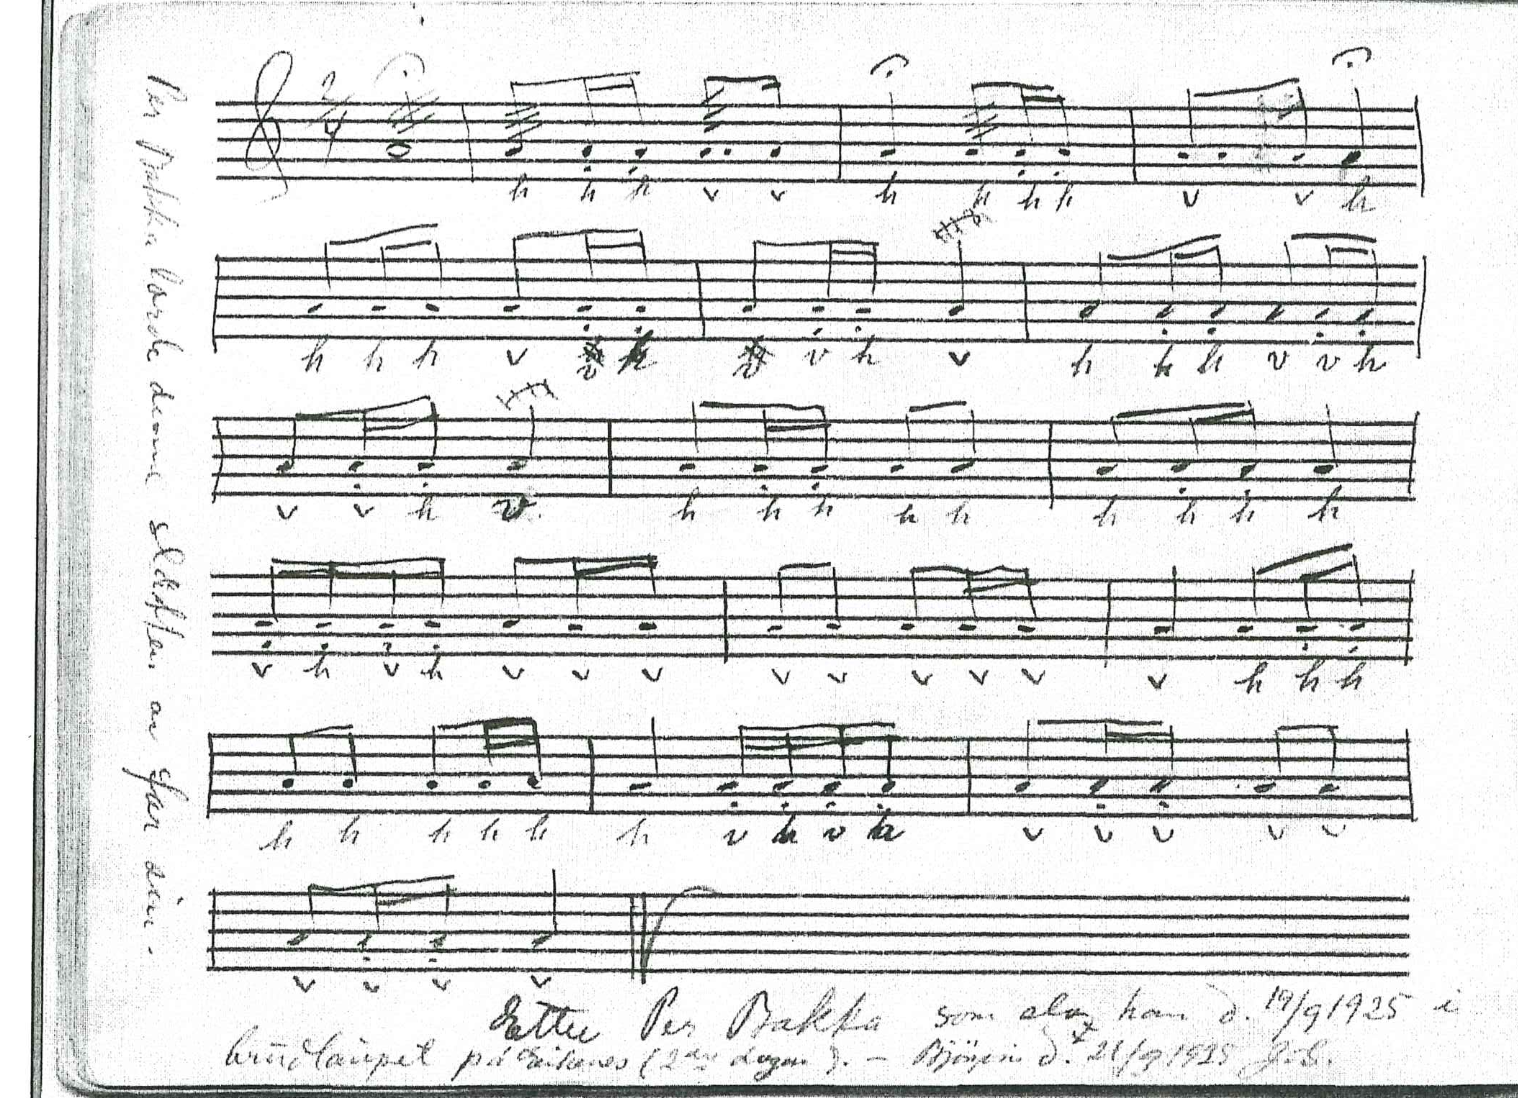 Per Bakka lærde denne slåtten av far sin.
2/4
h h h v v h h h h v v h
h h h v v h v v h v h h h v v h
v v h v h h h h h h h h h
v h v h v v v v v v v v v h h h
h h h h h h v h v h v v v v v
v v v v
Etter Per Bakka som slog han d. 19/9 1925 i
brudlaupet på (2dre dagen). – d. 21/9 1925